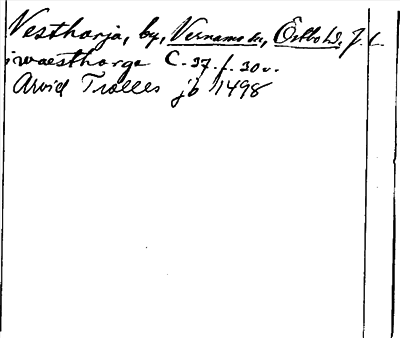 Vestharja, by, Vernamo sn, Östbo hd. J. l.
i wæstharge C. 37. f. 30 v.
Arvid Trolles jb 1498